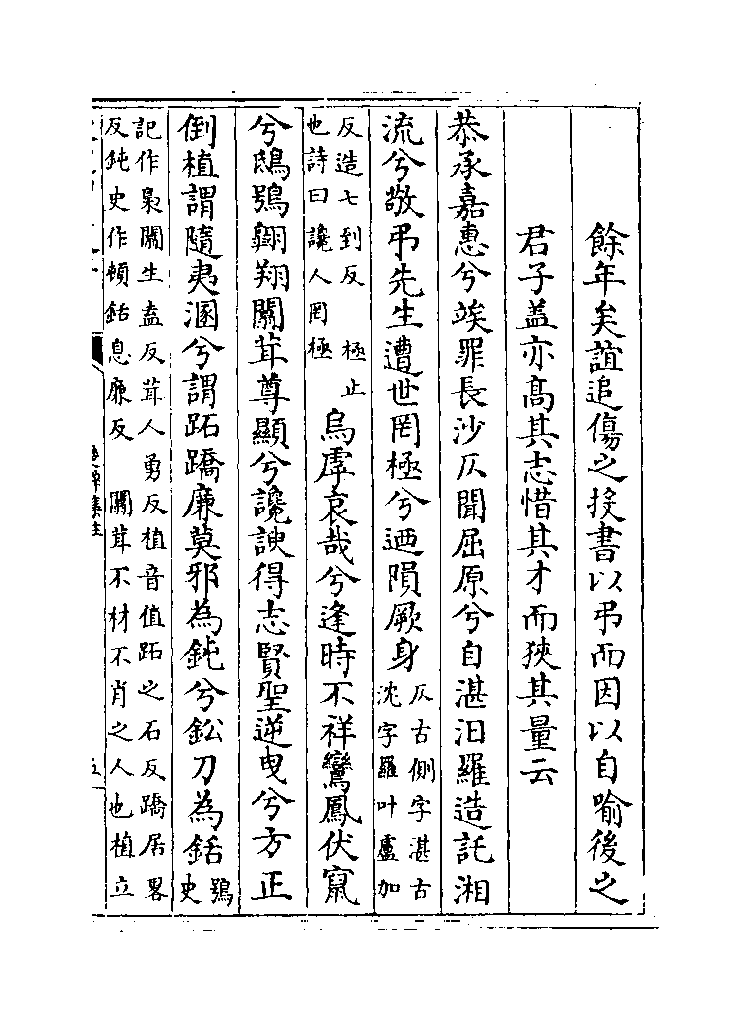 餘年矣誼追傷之投書以弔而因以自喻後之
君子盖亦髙其志惜其才而狹其量云
恭承嘉惠兮竢罪長沙仄聞屈原兮自湛汨羅造託湘
流兮敬弔先生遭世罔極兮迺隕厥身仄古側字湛古
沈字羅叶盧加
反造七到反 極止
也詩曰讒人罔極烏虖哀哉兮逢時不祥鸞鳳伏竄
兮鴟鴞翺翔闒茸尊顯兮讒諛得志賢聖逆曳兮方正
倒植謂隨夷溷兮謂跖蹻廉莫邪為鈍兮鈆刀為銛鴞
史
記作梟闒生盍反茸人勇反植音值跖之石反蹻居畧
反鈍史作頓銛息廉反 闒茸不材不肖之人也植立